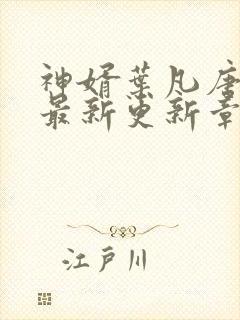 神婿葉凡唐
最新更新章
江戸川